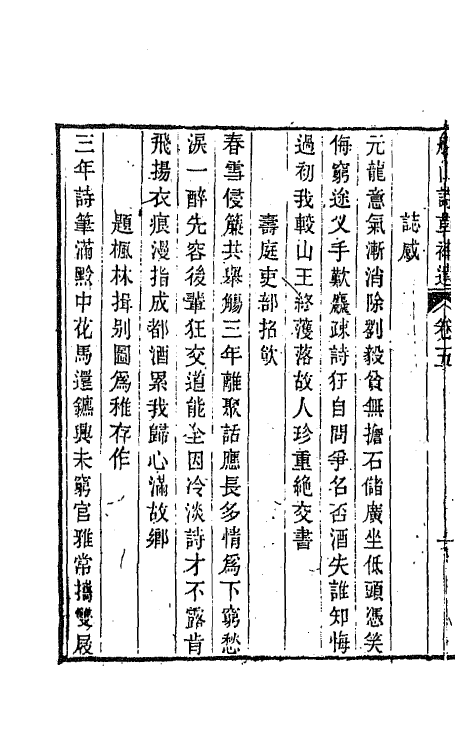 船山詩草補遺　卷五
誌感
元龍意氣漸消除劉毅貧無擔石儲廣坐低頭憑笑
侮窮途叉手歎麤疎詩狂自問爭名否酒失誰知悔
過初我較山王終濩落故人珍重絶交書
壽庭吏部招飲
春雪侵簾共舉觴三年離聚話應長多情爲下窮愁
淚一醉先容後輩狂交道能全因冷淡詩才不露肯
飛揚衣痕漫指成都酒累我歸心滿故鄉
題楓林揖别圖爲稚存作
三年詩筆滿黔中花馬還鑣興未窮官雅常攜雙屐